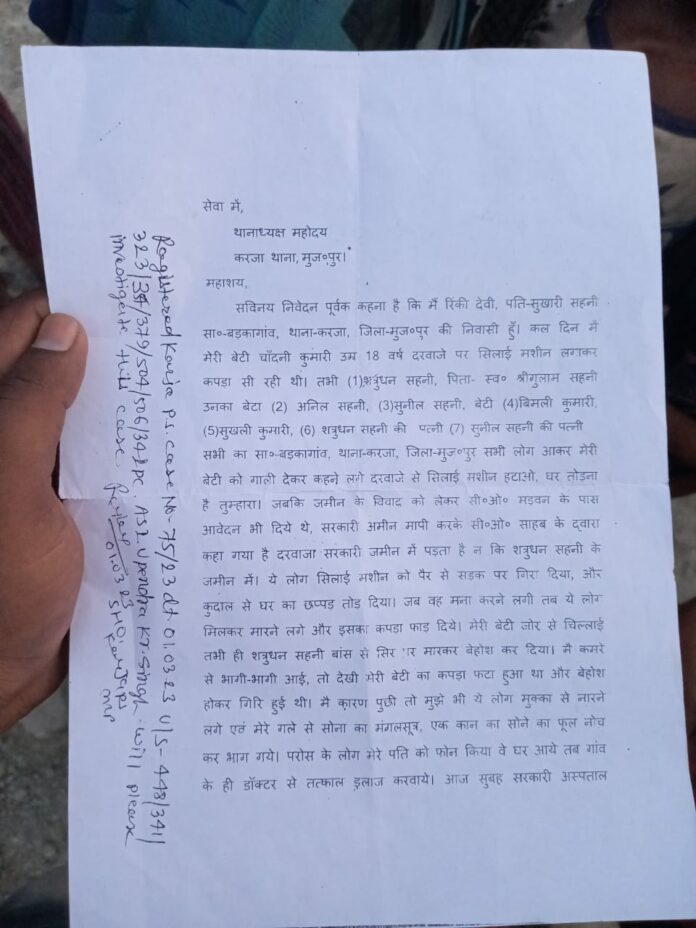 सेवा में,
थानाध्यक्ष महोदय
करजा थाना, मुज०पुर।
महाशय,
सविनय निवेदन पूर्वक कहना है कि मैं रिंकी देवी, पति-सुखारी सहनी
सा०-बड़कागांव, थाना-करजा, जिला-मुज०पुर की निवासी हूँ। कल दिन में
मेरी बेटी चाँदनी कुमारी उम्र 18 वर्ष दरवाजे पर सिलाई मशीन लगाकर
कपड़ा सी रही थी। तभी (1)शत्रुधन सहनी, पिता- स्व० श्रीगुलाम सहनी
उनका बेटा (2) अनिल सहनी, (3)सुनील सहनी, बेटी (4)बिमली कुमारी,
(5)सुखली कुमारी, (6) शत्रुधन सहनी की पत्नी (7) सुनील सहनी की पत्नी
सभी का सा०-बड़कागांव, थाना-करजा, जिला-मुज०पुर सभी लोग आकर मेरी
बेटी को गाली देकर कहने लगे दरवाजे से सिलाई मशीन हटाओ, घर तोड़ना
है तुम्हारा। जबकि जमीन के विवाद को लेकर सी०ओ० मड़वन के पास
आवेदन भी दिये थे, सरकारी अमीन मापी करके सी०ओ० साहब के द्वारा
कहा गया है दरवाजा सरकारी जमीन में पड़ता है न कि शत्रुधन सहनी के
जमीन में। ये लोग सिलाई मशीन को पैर से सड़क पर गिरा दिया, और
कुदाल से घर का छप्पड़ तोड़ दिया। जब वह मना करने लगी तब ये लोग
मिलकर मारने लगे और इसका कपड़ा फाड़ दिये। मेरी बेटी जोर से चिल्लाई
तभी ही शत्रुधन सहनी बांस से सिर पर मारकर बेहोश कर दिया। मै कमरे
से भागी-भागी आई, तो देखी मेरी बेटी का कपड़ा फटा हुआ था और बेहोश
होकर गिरि हुई थी। मै कारण पुछी तो मुझे भी ये लोग मुक्का से मारने
लगे एवं मेरे गले से सोना का मंगलसूत्र, एक कान का सोने का फूल नोच
कर भाग गये। परोस के लोग मेरे पति को फोन किया वे घर आये तब गांव
के ही डॉक्टर से तत्काल इलाज करवाये। आज सुबह सरकारी अस्पताल
Registered Karja P.S. case No- 75/23 dt. 01.03.23 U/S- 448/341/
323/354/379/504/506/34 IPC. ASI Upendra Kr. Singh will please
investigate this case.
01.03.23
SHO,
Karja PS